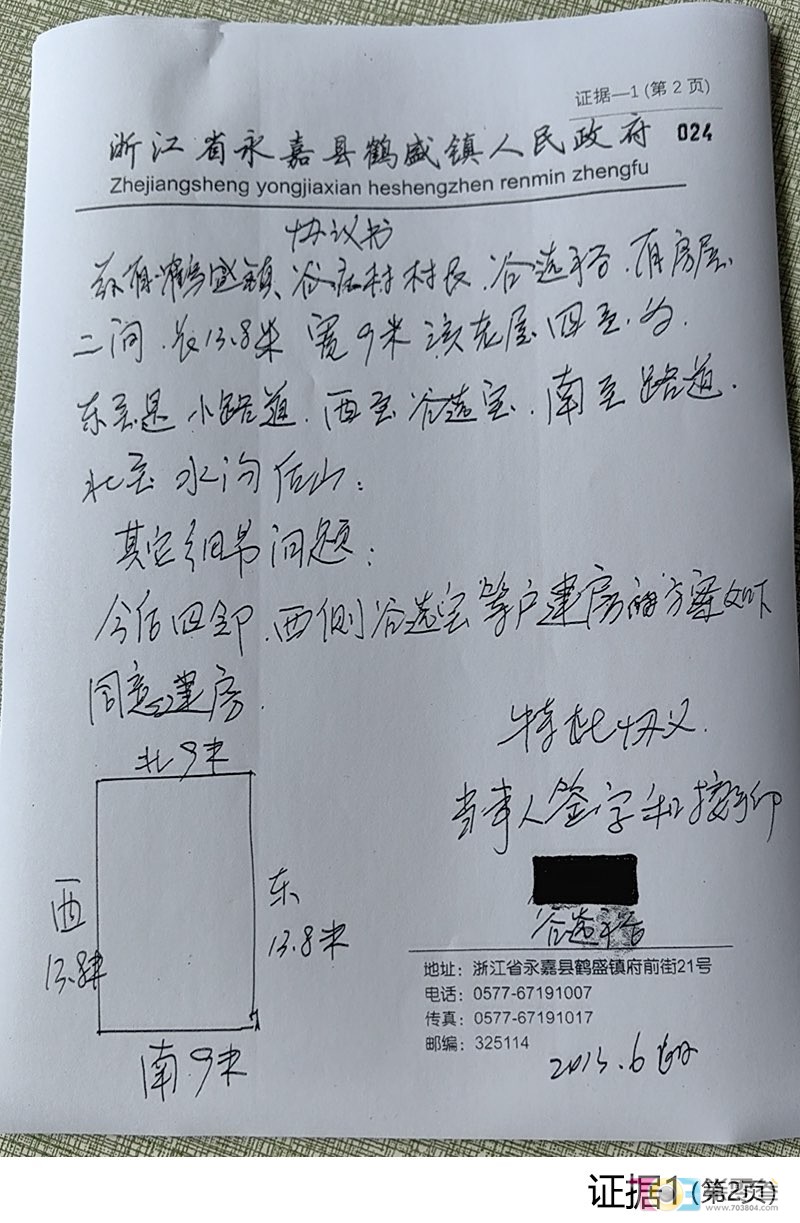 证据—1 (第 2 页)
浙江省永嘉县鹤盛镇人民政府 024
Zhejiangsheng yongjiaxian heshengzhen renmin zhengfu
协议书
兹有鹤盛镇、谷庙村村民、谷选、有房屋
二间、长13.8米 宽9米 该老屋四至为.
东至是小路道. 西至谷选宝. 南至路道.
北至 水沟后山:
其它细节问题:
今后四邻. 西侧谷选宝等户建房的方案如下
同意建房.
特此协义.
当事人签字和按手印
北9米
西
13.8米
东
13.8米
南.9米
谷选
地址: 浙江省永嘉县鹤盛镇府前街21号
电话: 0577-67191007
传真: 0577-67191017
邮编: 325114
证据1 (第2页)
www.703804.com